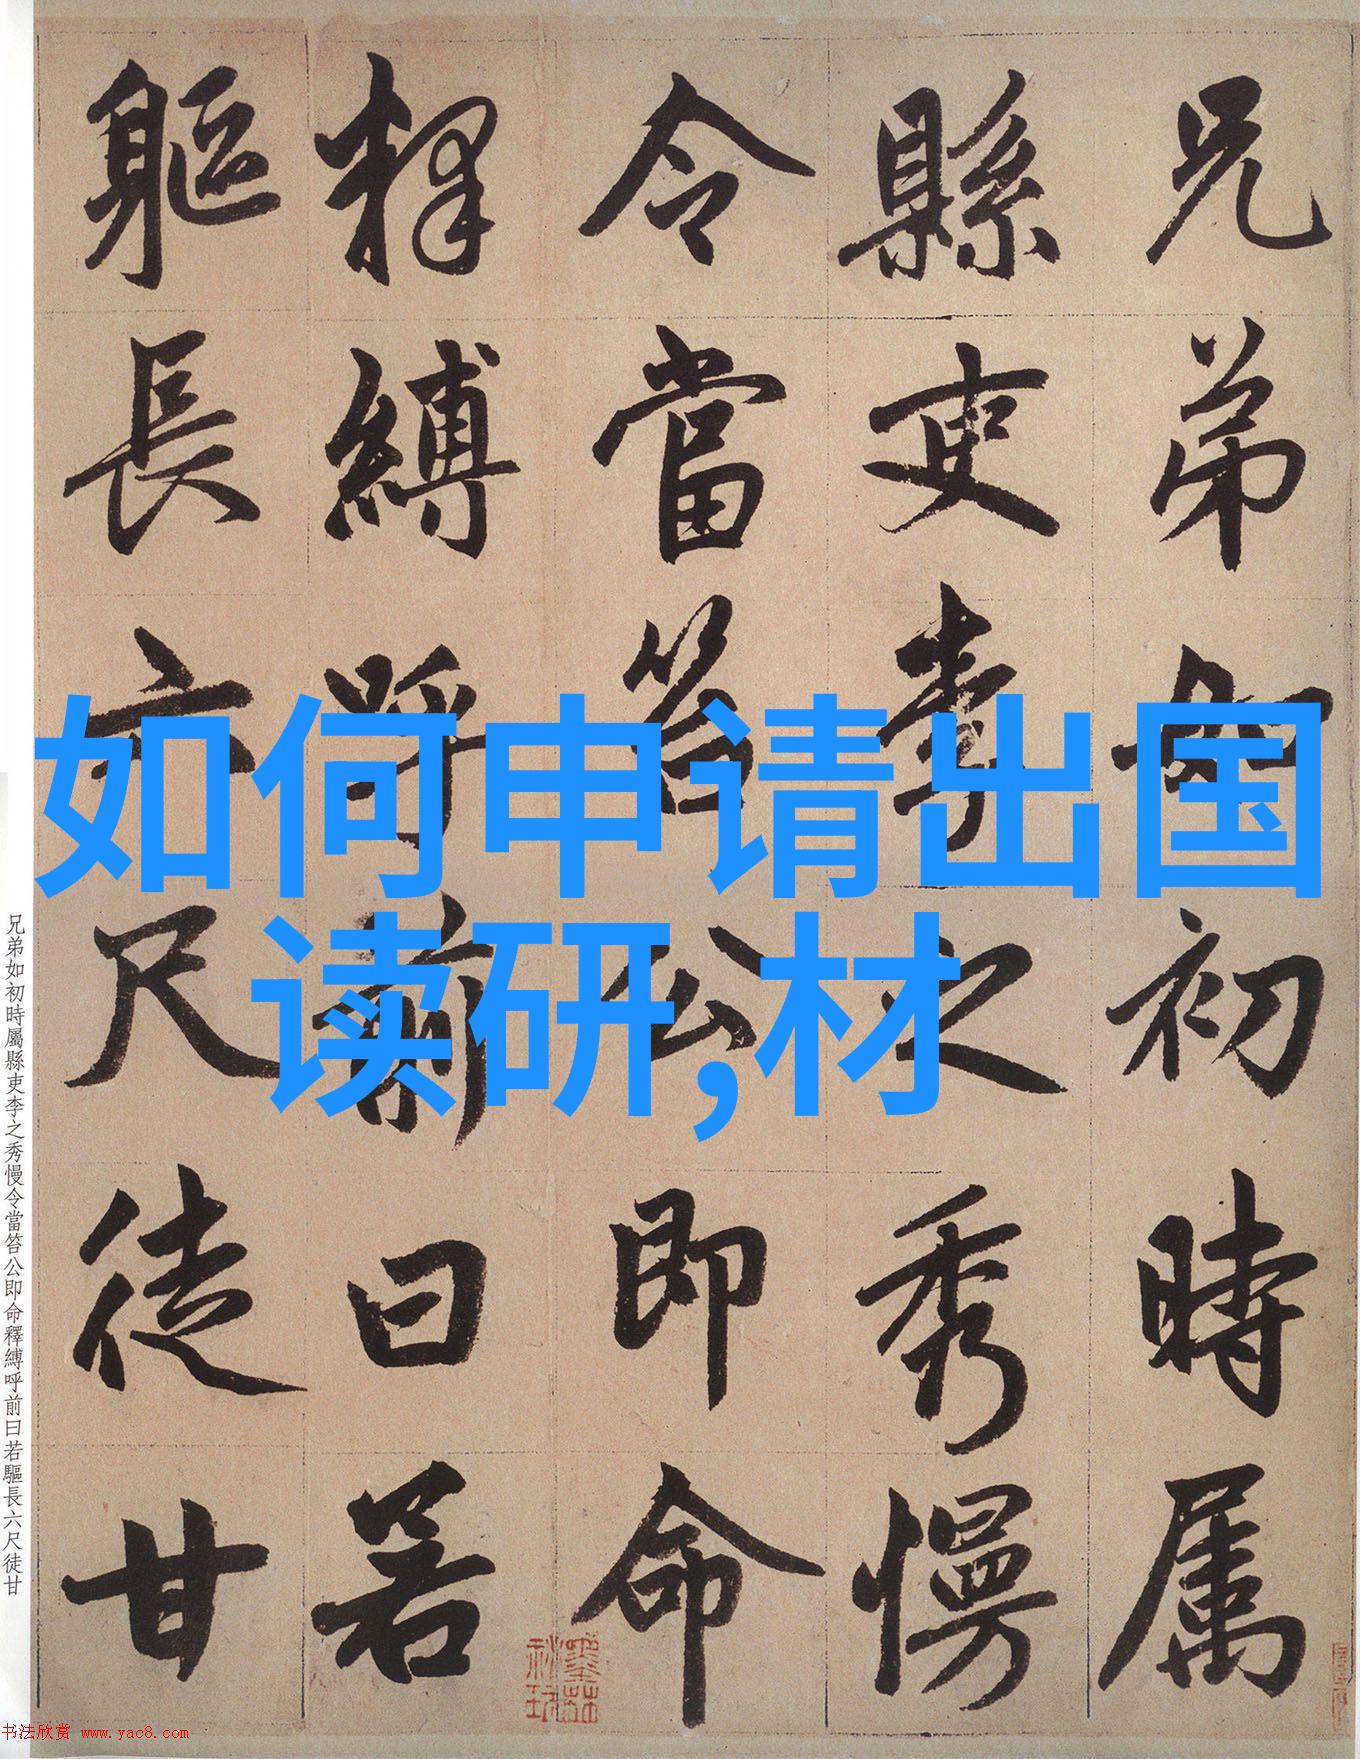 兄弟如初時属
縣吏李之秀慢
令當笞公即命
释縛呼前曰若
軀長六尺徒甘
如何申请出国
读研,材
兄弟如初時屬縣吏李之秀慢令當笞公即命釋縛呼前曰若驅長六尺徒甘
书法欣赏 www.yac8.com